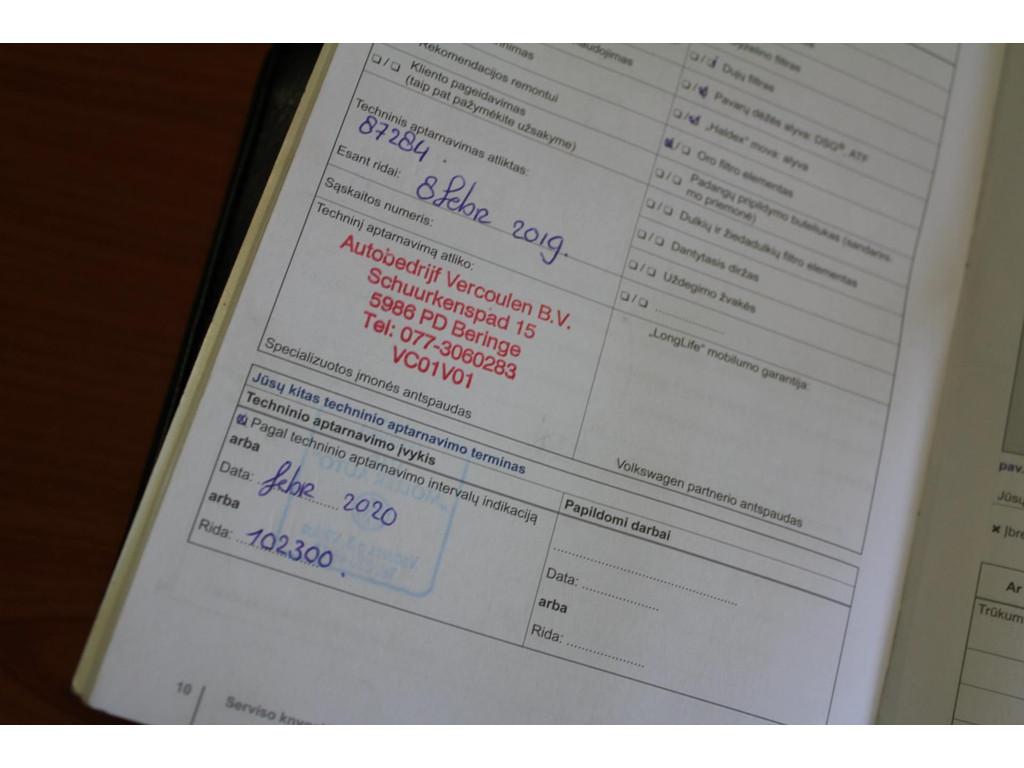 Rekomendacijos remontui
❏ / ❏ Kliento pageidavimas
(taip pat pažymėkite užsakyme)
Techninis aptarnavimas atliktas:
87284.
Esant ridai:
8 febr 2019.
Sąskaitos numeris:
Techninį aptarnavimą atliko:
Autobedrijf Vercoulen B.V.
Schuurkenspad 15
5986 PD Beringe
Tel: 077-3060283
VC01V01
Specializuotos įmonės antspaudas
❏ / ❏ Dujų filtras
❏ / ❏ Pavarų dėžės alyva: DSG®, ATF
❏ / ❏ „Haldex“ mova: alyva
❏ / ❏ Oro filtro elementas
❏ / ❏ Padangų pripildymo buteliukas (sandarini-
mo priemonė)
❏ / ❏ Dulkių ir žiedadulkių filtro elementas
❏ / ❏ Dantytasis diržas
❏ / ❏ Uždegimo žvakės
❏ / ❏ ....................
„LongLife“ mobilumo garantija:
Volkswagen partnerio antspaudas
Jūsų kitas techninio aptarnavimo terminas
Techninio aptarnavimo įvykis
Pagal techninio aptarnavimo intervalų indikaciją
arba
Data: febr 2020
arba
Rida: 102300.
Papildomi darbai
Data: ....................
arba
Rida: ....................
10
Serviso
pav.
Jūsų
Ar